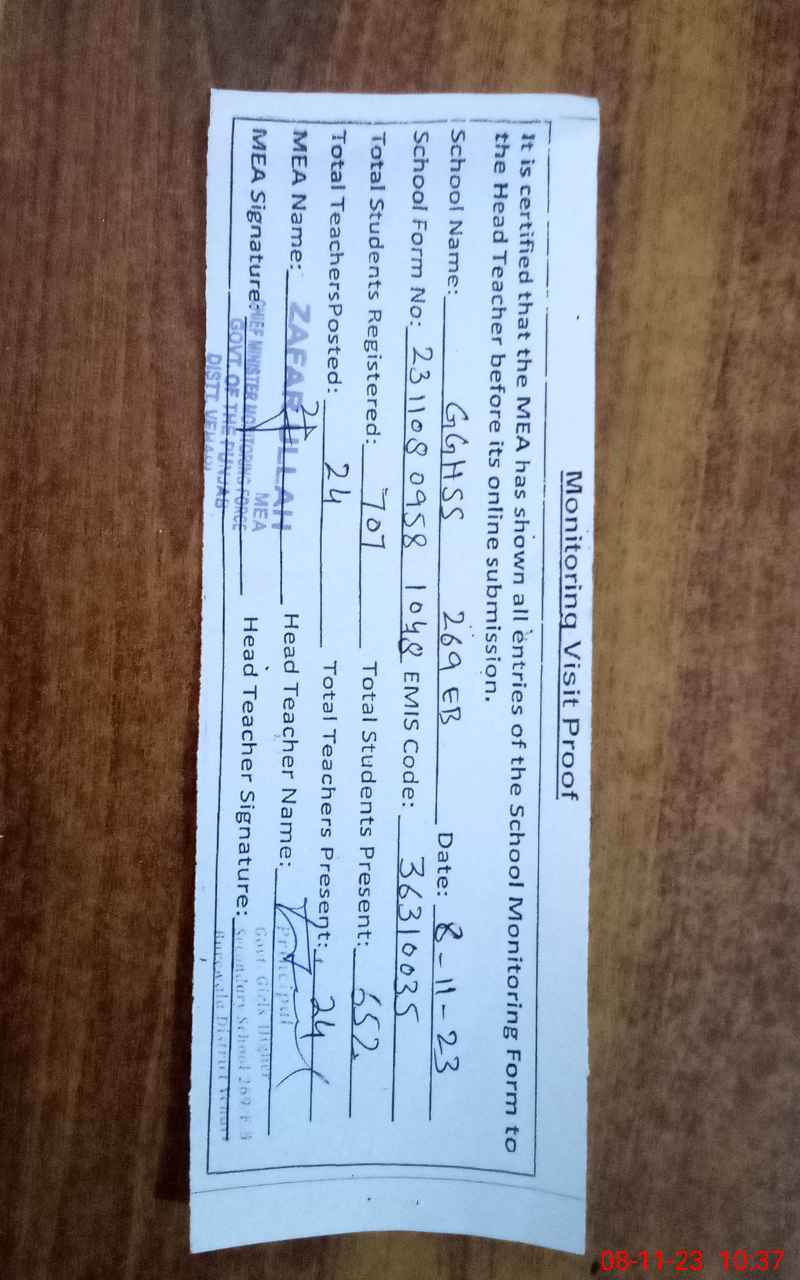 Monitoring Visit Proof
It is certified that the MEA has shown all entries of the School Monitoring Form to
the Head Teacher before its online submission.
School Name: GGHSS 269 EB Date: 8-11-23
School Form No: 231108 0958 1048 EMIS Code: 36310035
Total Students Registered: 707 Total Students Present: 652
Total TeachersPosted: 24 Total Teachers Present: 24
MEA Name: ZAFAR ULLAH Head Teacher Name:
MEA Signature: Head Teacher Signature:
MEA
CHIEF MINISTER MONITORING FORCE
GOVT. OF THE PUNJAB
DISTT. VEHARI
Principal
Govt. Girls Higher
Secondary School 269/E B
Burewala District Vehari
08-11-23 10:37